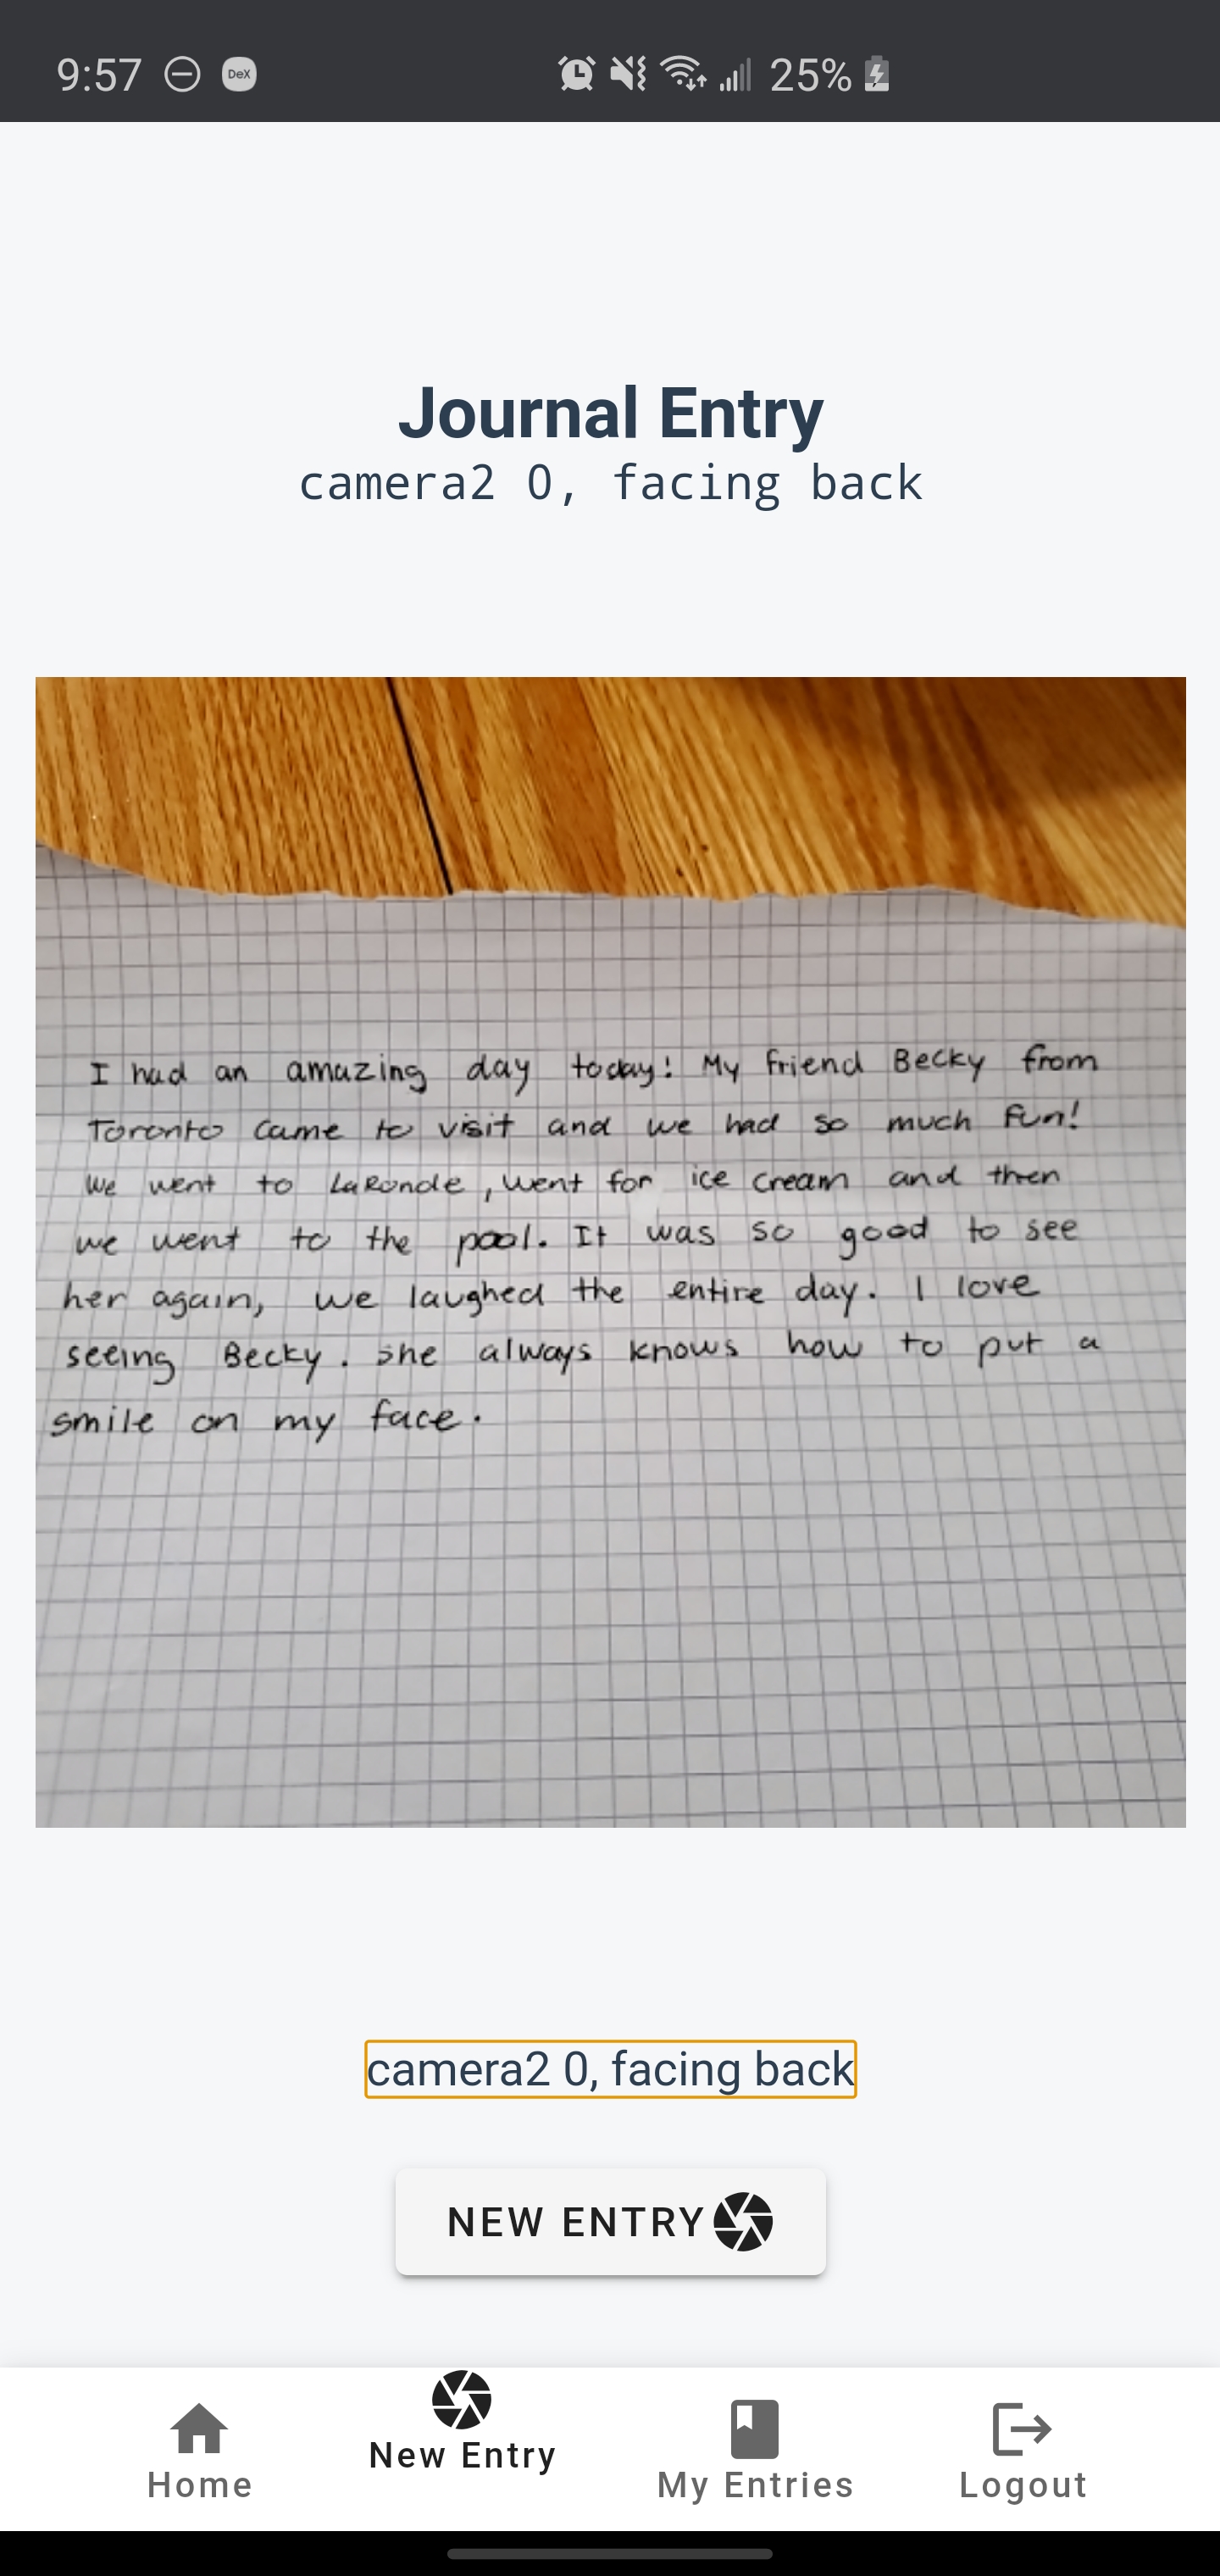 9:57 DeX 25%
Journal Entry
camera2 0, facing back
I had an amazing day today! My friend Becky from
Toronto came to visit and we had so much fun!
We went to LaRonde, went for ice cream and then
we went to the pool. It was so good to see
her again, we laughed the entire day. I love
seeing Becky. She always knows how to put a
smile on my face.
camera2 0, facing back
NEW ENTRY
Home New Entry My Entries Logout